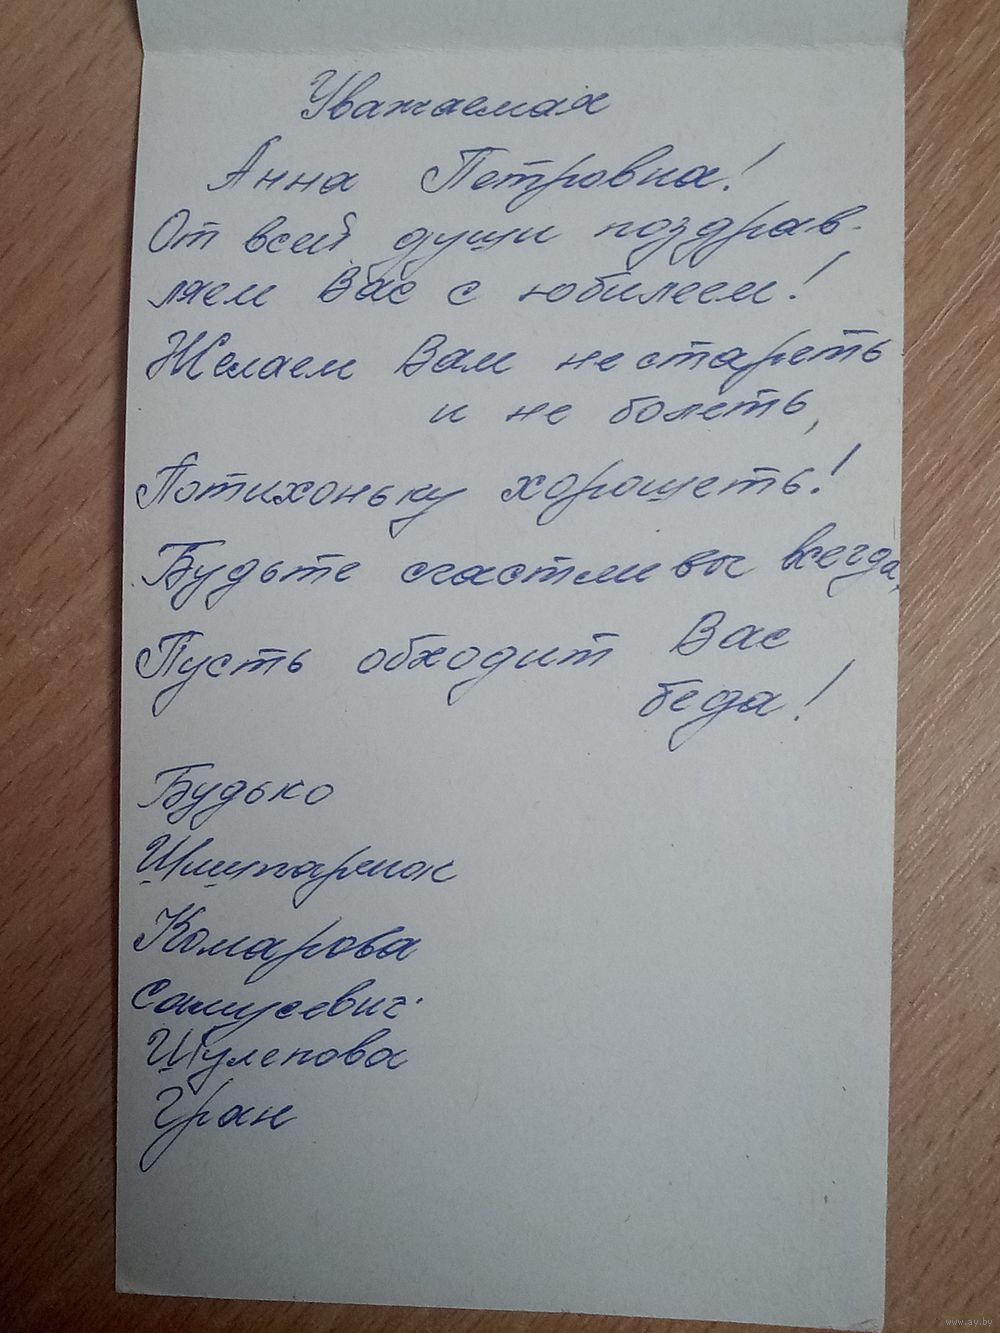 Уважаемая
Анна Петровна!
От всей души поздрав-
ляем Вас с юбилеем!
Желаем Вам не стареть
и не болеть,
Потихоньку хорошеть!
Будьте счастливы всегда,
Пусть обходит Вас
беда!
Будько
Комарова
Самусевич
Шулепова
Гран
www.ay.by